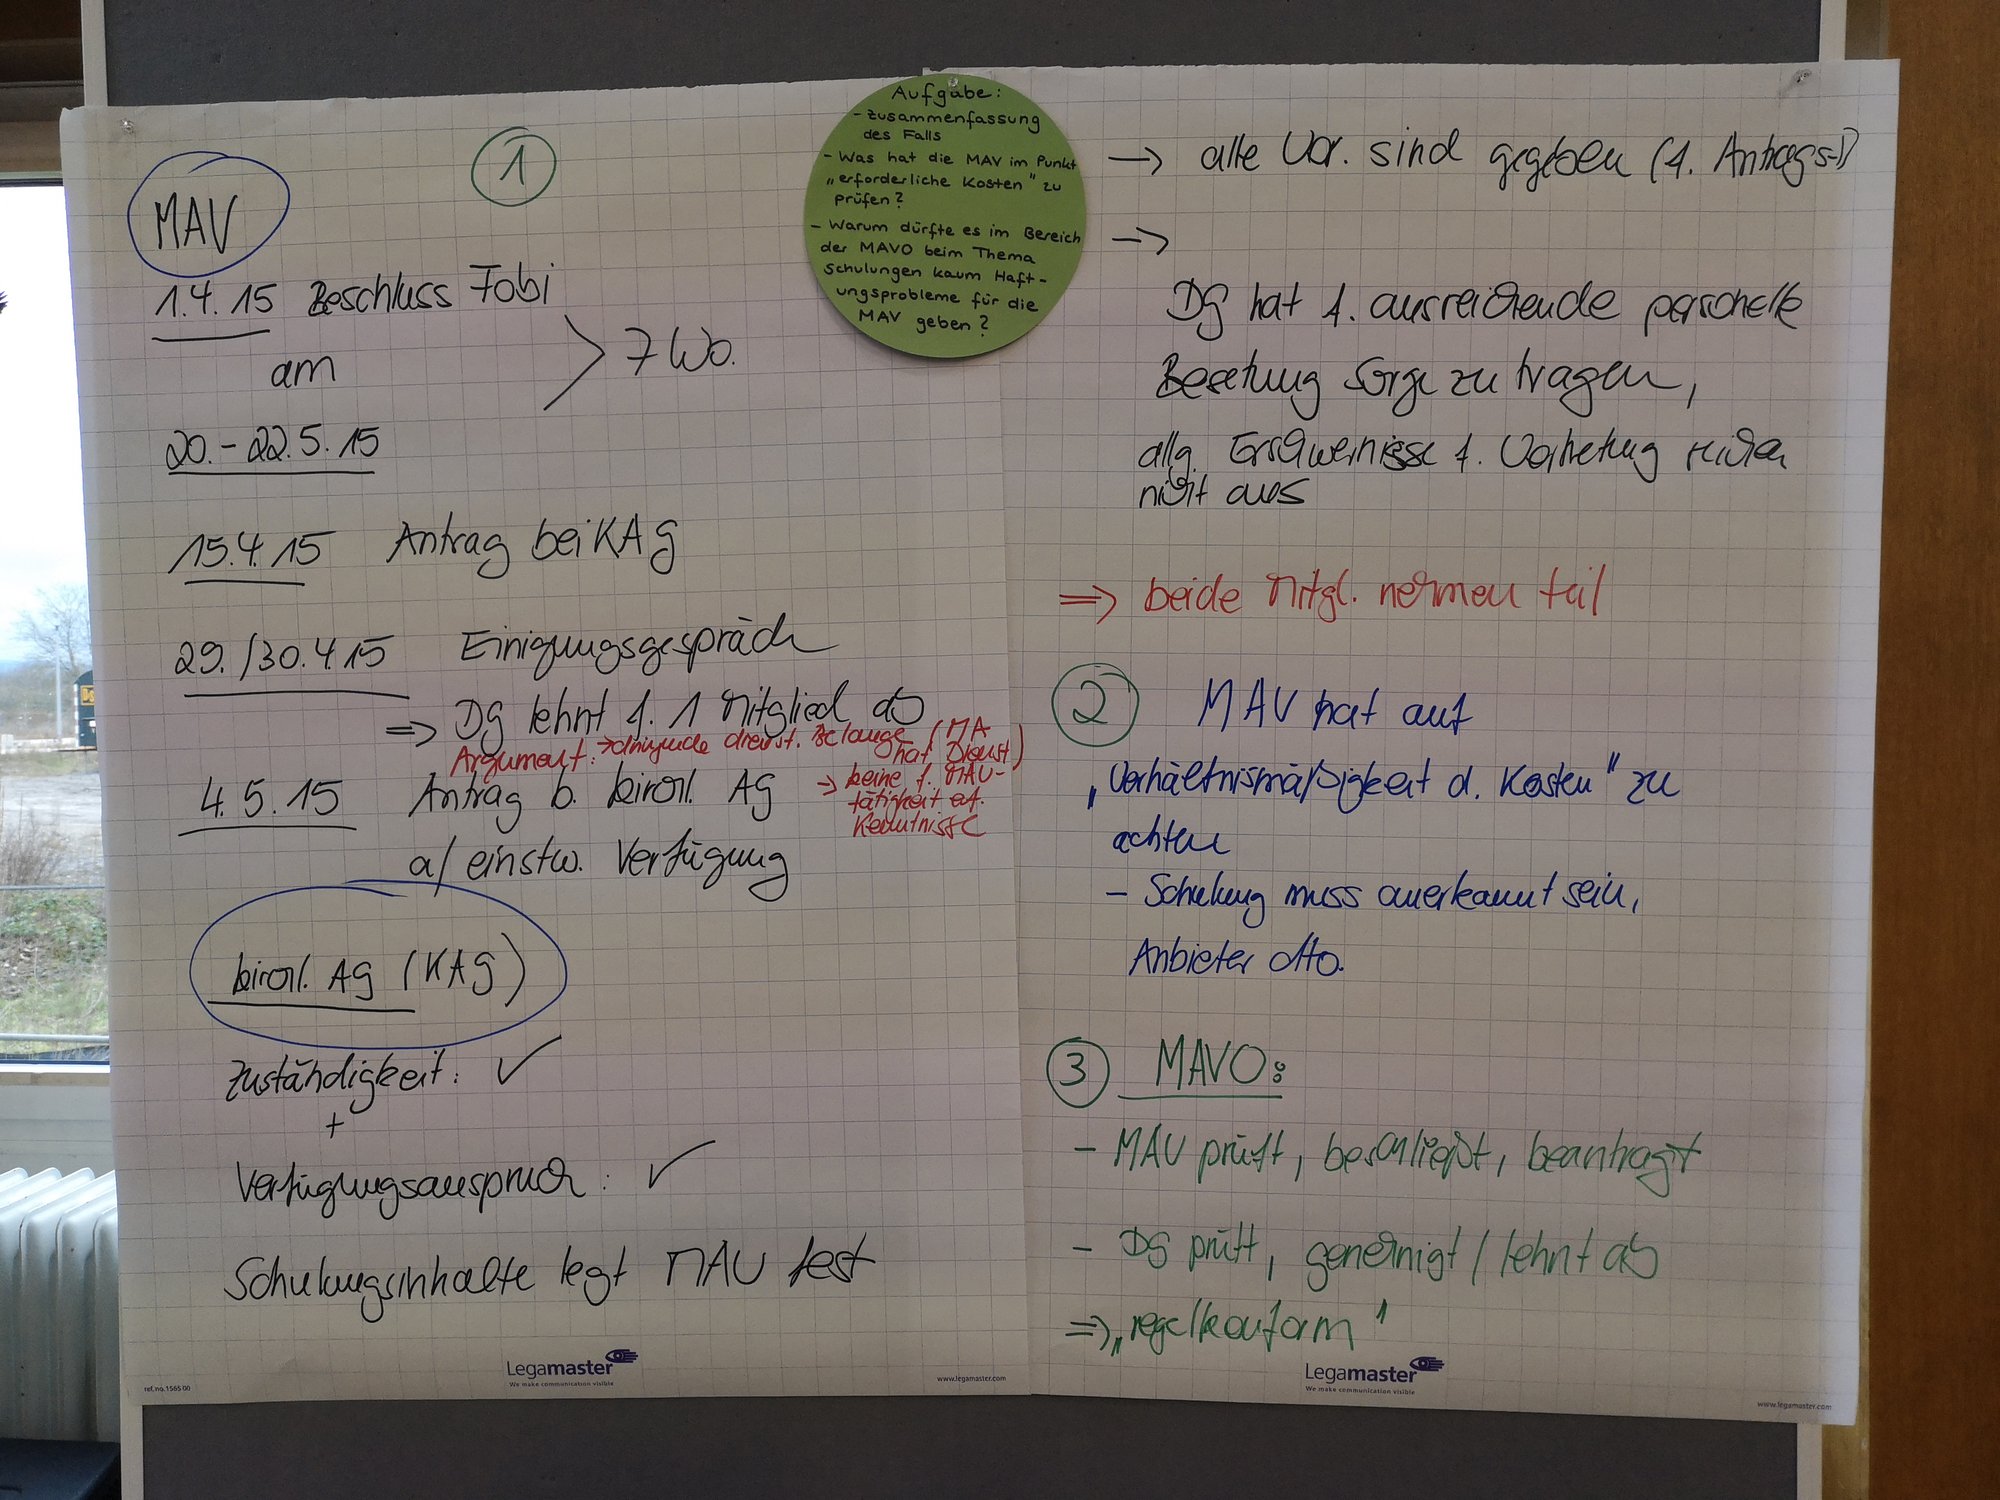 Aufgabe:
- Zusammenfassung
des Falls
- Was hat die MAV im Punkt
"erforderliche Kosten" zu
prüfen?
- Warum dürfte es im Bereich
der MAVO beim Thema
Schulungen kaum Haft-
ungsprobleme für die
MAV geben?
1
MAV
1.4.15 Beschluss Fobi
am
> 7 Wo.
20.-22.5.15
15.4.15 Antrag bei KAG
29./30.4.15 Einigungsgespräch
=> DG lehnt f. 1 Mitglied ab
Argument: -> dringende dienst. Belange (MA
hat Dienst)
4.5.15 Antrag b. kirchl. AG
-> keine f. MAV-
tätigkeit erf.
Kenntnisse
a/ einstw. Verfügung
kirchl. AG (KAG)
Zuständigkeit: ✓
+
Verfügungsanspruch: ✓
Schulungsinhalte legt MAV fest
Legamaster
We make communication visible
ref.no.1565 00
www.legamaster.com
-> alle Vor. sind gegeben (f. Antrags-)
->
DG hat f. ausreichende personelle
Besetzung Sorge zu tragen,
allg. Erschwernisse f. Vertretung reichen
nicht aus
=> beide Mitgl. nehmen teil
2 MAV hat auf
„Verhältnismäßigkeit d. Kosten" zu
achten
- Schulung muss anerkannt sein,
Anbieter dto.
3 MAVO:
- MAV prüft, beschließt, beantragt
- DG prüft, genehmigt / lehnt ab
=> „regelkonform"
Legamaster
We make communication visible
www.legamaster.com